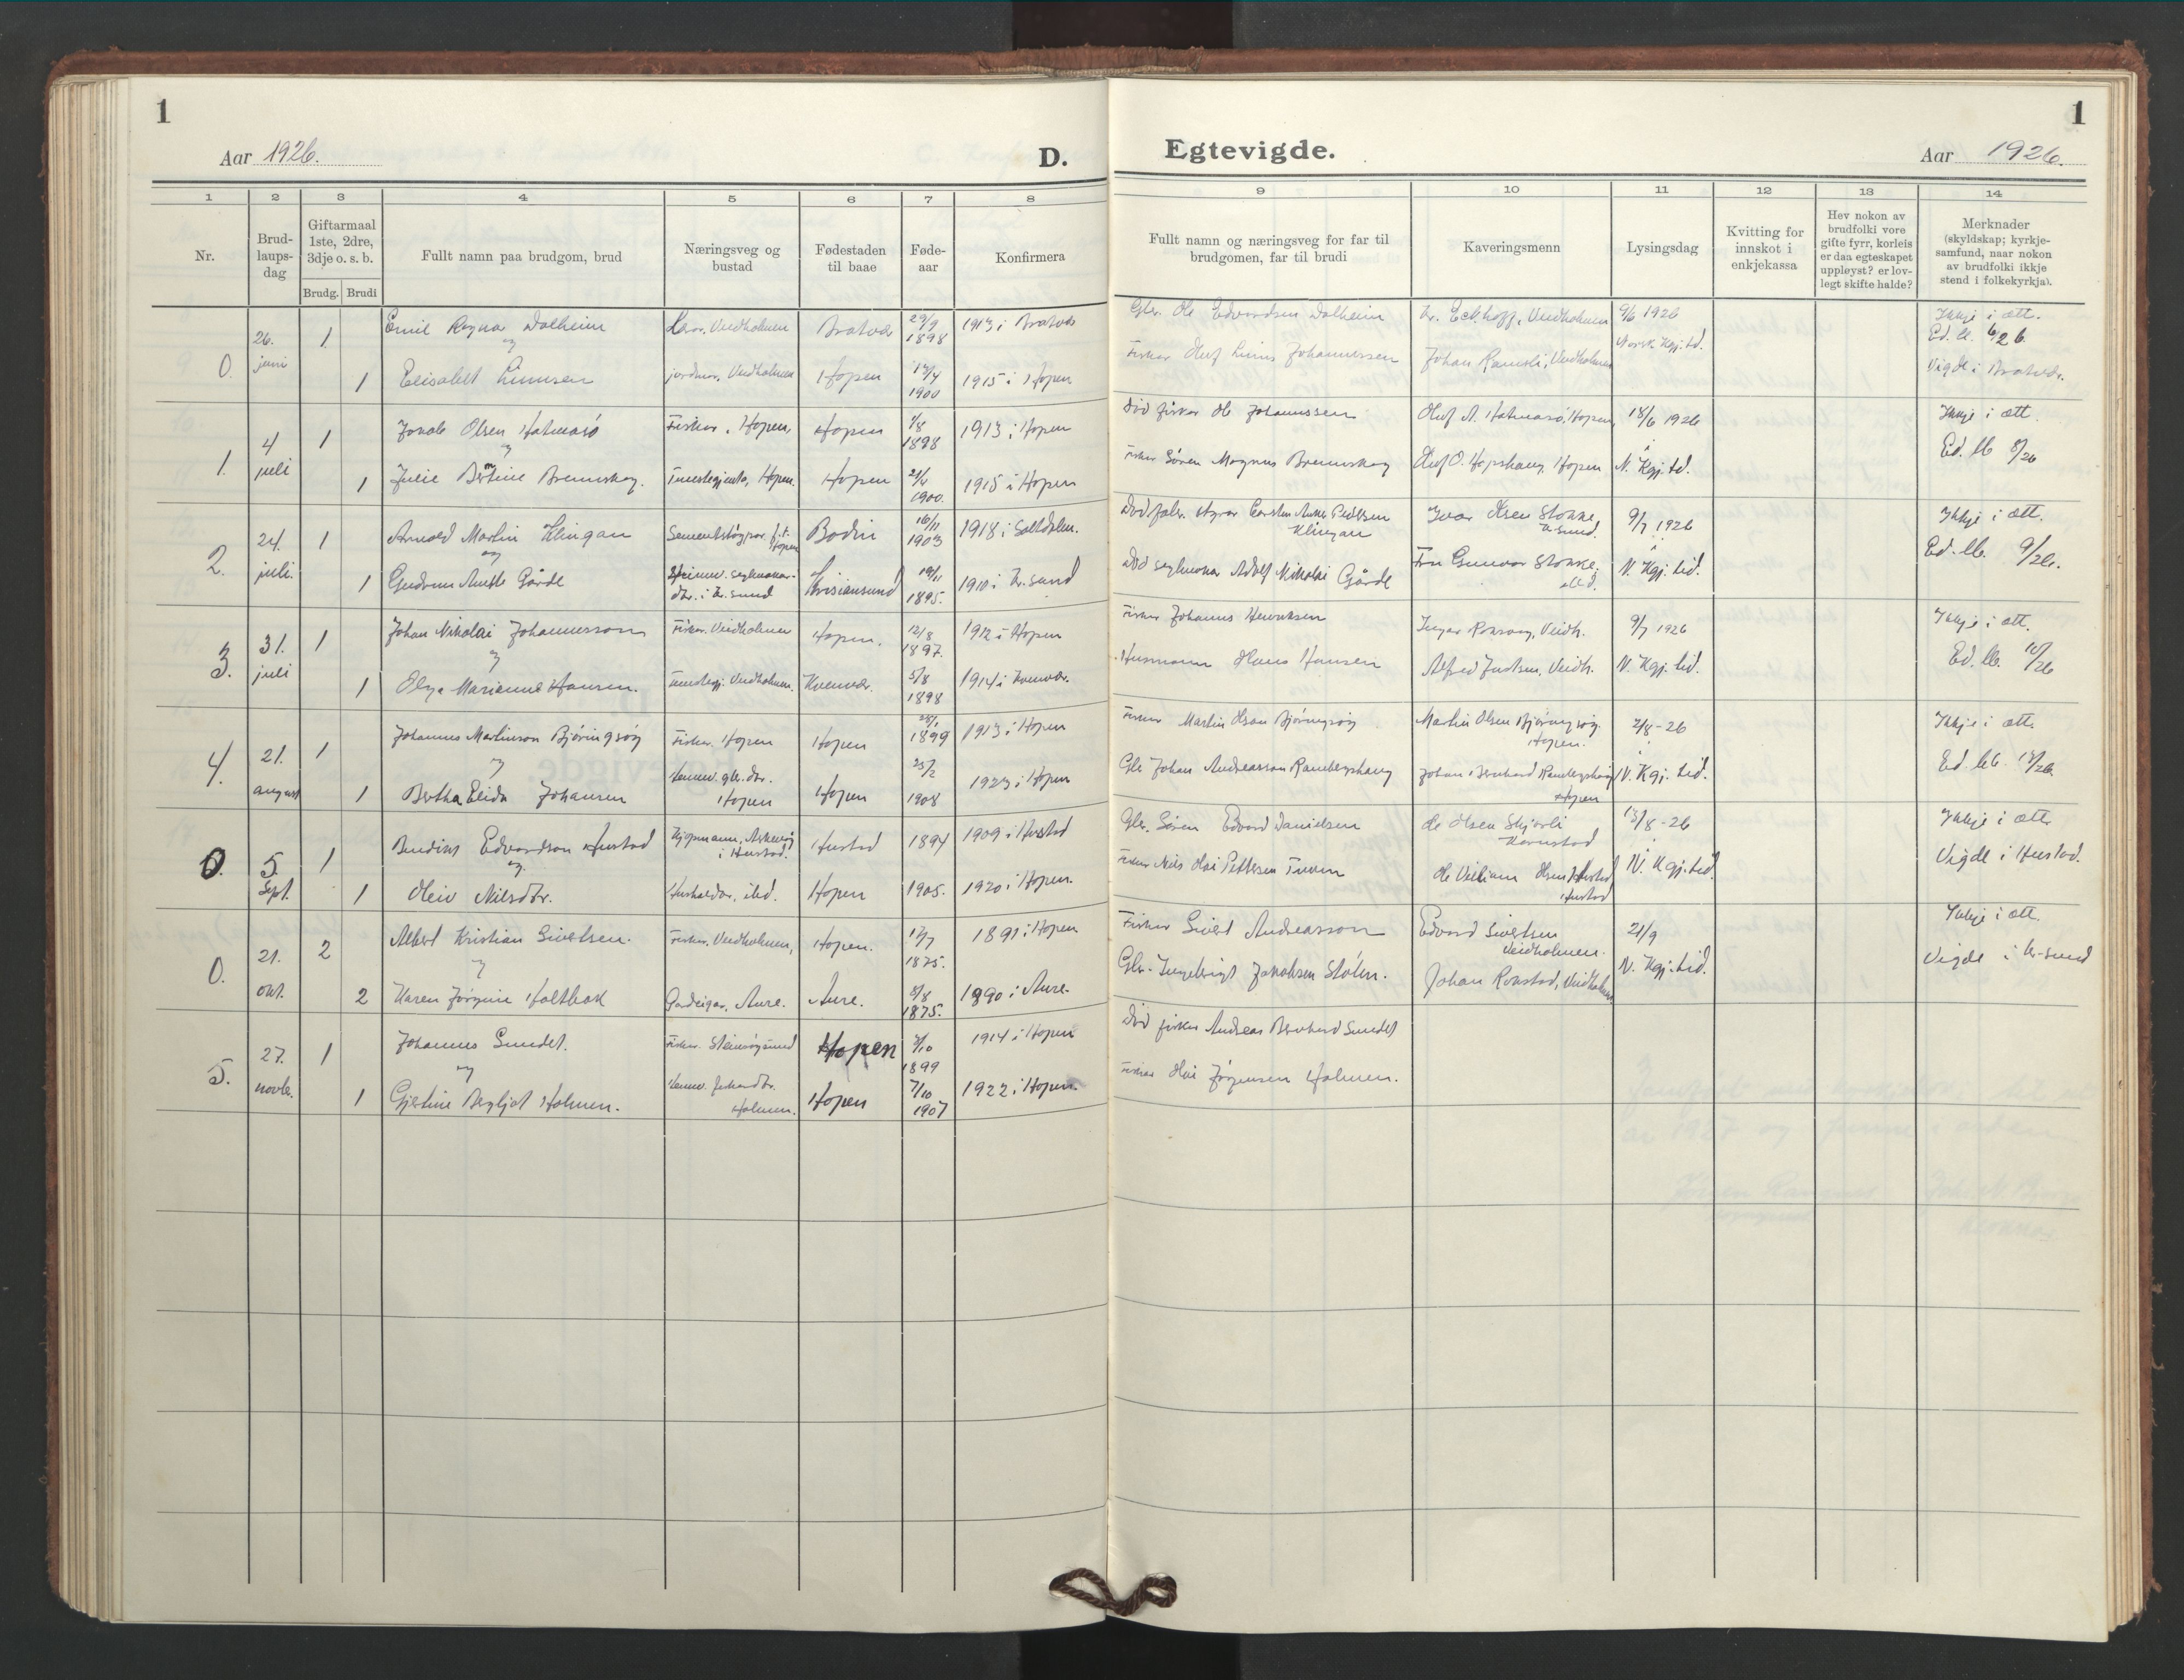 1
1
Aar 1926.
D.
Egtevigde.
Aar 1926.
1 2 3 4 5 6 7 8 9 10 11 12 13 14
Nr.
Brud-
laups-
dag
Giftarmaal
1ste, 2dre,
3dje o. s. b.
Brudg. Brudi
Fullt namn paa brudgom, brud
Næringsveg og
bustad
Fødestaden
til baae
Føde-
aar
Konfirmera
Fullt namn og næringsveg for far til
brudgomen, far til brudi
Kaveringsmenn
Lysingsdag
Kvitting for
innskot i
enkjekassa
Hev nokon av
brudfolki vore
gifte fyrr, korleis
er daa egteskapet
uppløyst? er lov-
legt skifte halde?
Merknader
(skyldskap; kyrkje-
samfund, naar nokon
av brudfolki ikkje
stend i folkekyrkja).
0. 26. juni 1
Emil Ragnar Dalheim
Veidholmen Bratvær 29/9 1898 1913 i Bratvær
Gbr. Ole Edvardsen Dalheim
Kr. Eckhoff, Veidholmen 9/6 1926
Norsk Kgj. tid.
Ikkje i ætt.
og
1 Elisabet Linusen
jordmor, Veidholmen Hopen 1900 1915 i Hopen
Fiskar Oluf Linus Johannessen
Johan Ramsli, Veidholmen
Vigde i Bratvær.
1. 4 juli 1
Jakob Olsen Hatmasö
Fiskar, Hopen, Hopen 1/8 1898 1913 i Hopen
Död fiskar Ole Johannssen
Oluf A. Hatmasö, Hopen 18/6 1926
Ikkje i ætt.
og
1 Julie Bertine Bremskag.
Tenestegjenta, Hopen. Hopen 1900. 1915 i Hopen
Fiskar Sören Magnus Bremskag
Oluf O. Hopshaug, Hopen N. Kgj. td.
Ed. bb 8/26
2. 24. juli. 1
Arnold Martin Klingan
f.t. Hopen Bodin 16/11 1903 1918 i Saltdalen.
Klingan
Ivar Olsen Stokke
Kr. sund. 9/7 1926
Ikkje i ætt.
og
1 Gudrun Gårde
i Kr. sund Krisiansund 1895. 1910 i Kr. sund
Död Adolf Nikolai Gårde
Fru Gunvor Stokke. N. Kgj. tid.
Ed. bb. 9/26.
3. 31. juli 1
Johan Nikolai Johannesson
Fiskar. Veidholmen Hopen. 12/8 1897. 1912 i Hopen
Fiskar Johannes Henriksen
Veidh. 9/7 1926
Ikkje i ætt.
og
1 Olga Marianne Hansen.
Tenestegj. Veidholmen. Kvenvær. 5/8 1898 1914 i Kvenvær.
Husmann Hans Hansen
Alfred Justsen, Veidh. N. Kgj. tid.
Ed. bb. 10/26
4. 21. august 1
Johannes Martinson Björingsöy
Fiskar. Hopen Hopen 28/1 1899 1913 i Hopen
Fiskar Martin Olsen Björingsöy
Martin Olsen Björingsöy.
Hopen. 2/8-26
Ikkje i ætt.
og
1 Bertha Elida Johansen
Heimv. gbr. dtr.
Hopen Hopen 25/2 1908 1923 i Hopen
Gbr Johan Andreasson Ramberghaug
Johan Bernhard Ramberghaug
Hopen N. Kgj. tid.
Ed. bb. 13/26
0. 5. Sept. 1
Bendiks Edvardson Hustad
Kjøpmann,
i Hustad. Hustad 1894 1909 i Hustad
Gbr. Sören Edvard Danielsen
Ole Olsen Skjærli 13/8-26
Ikkje i ætt
og.
1 Oleiv Nilsdtr.
Hushaldar, ibd. Hopen 1905. 1920 i Hopen.
Fiskar Nils Olai Pettersen
Ole Villiam Olsen Hustad
Hustad N. Kgj. tid.
Vigde i Hustad.
0. 21. okt. 2
Albert Kristian Sivertsen.
Fiskar, Veidholmen, Hopen. 17/7 1875. 1891 i Hopen
Fiskar Sivert Andreasson
Edvard Sivertsen
Veidholmen. 21/9
Ikkje i ætt.
og
2 Karen Jörgine Holtbak
Gardeigar, Aure. Aure. 8/8 1875. 1890 i Aure.
Gbr. Ingebrigt Jakobsen Stölen.
Johan Rokstad, Veidholmen. N. Kgj. tid.
Vigde i Kr-sund
5. 27. novbr. 1
Johannes Sundet.
Fiskar. Steinsöysund Hopen 1899 1914 i Hopen
Död fiskar Andreas Bernhard Sundet
og
1 Gjertine Bergljot Holmen.
Heimv. fiskardtr.
Holmen. Hopen 7/10 1907 1922 i Hopen.
Fiskar Olai Jörgensen Holmen.